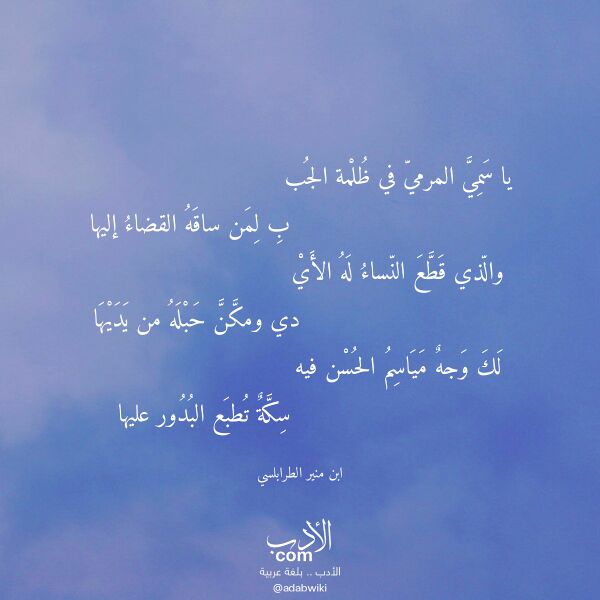 يا سَمِيَّ المرميّ في ظُلْمة الجُب
بِ لِمَن ساقَهُ القضاءُ إليها
والّذي قَطَّعَ النّساءُ لَهُ الأَيْ
دي ومكَّنَّ حَبْلَهُ من يَدَيْهَا
لَكَ وَجهٌ مَيَاسِمُ الحُسْن فيه
سِكَّةٌ تُطبَع البُدُور عليها
ابن منير الطرابلسي
الأدب
com
الأدب .. بلغة عربية
@adabwiki